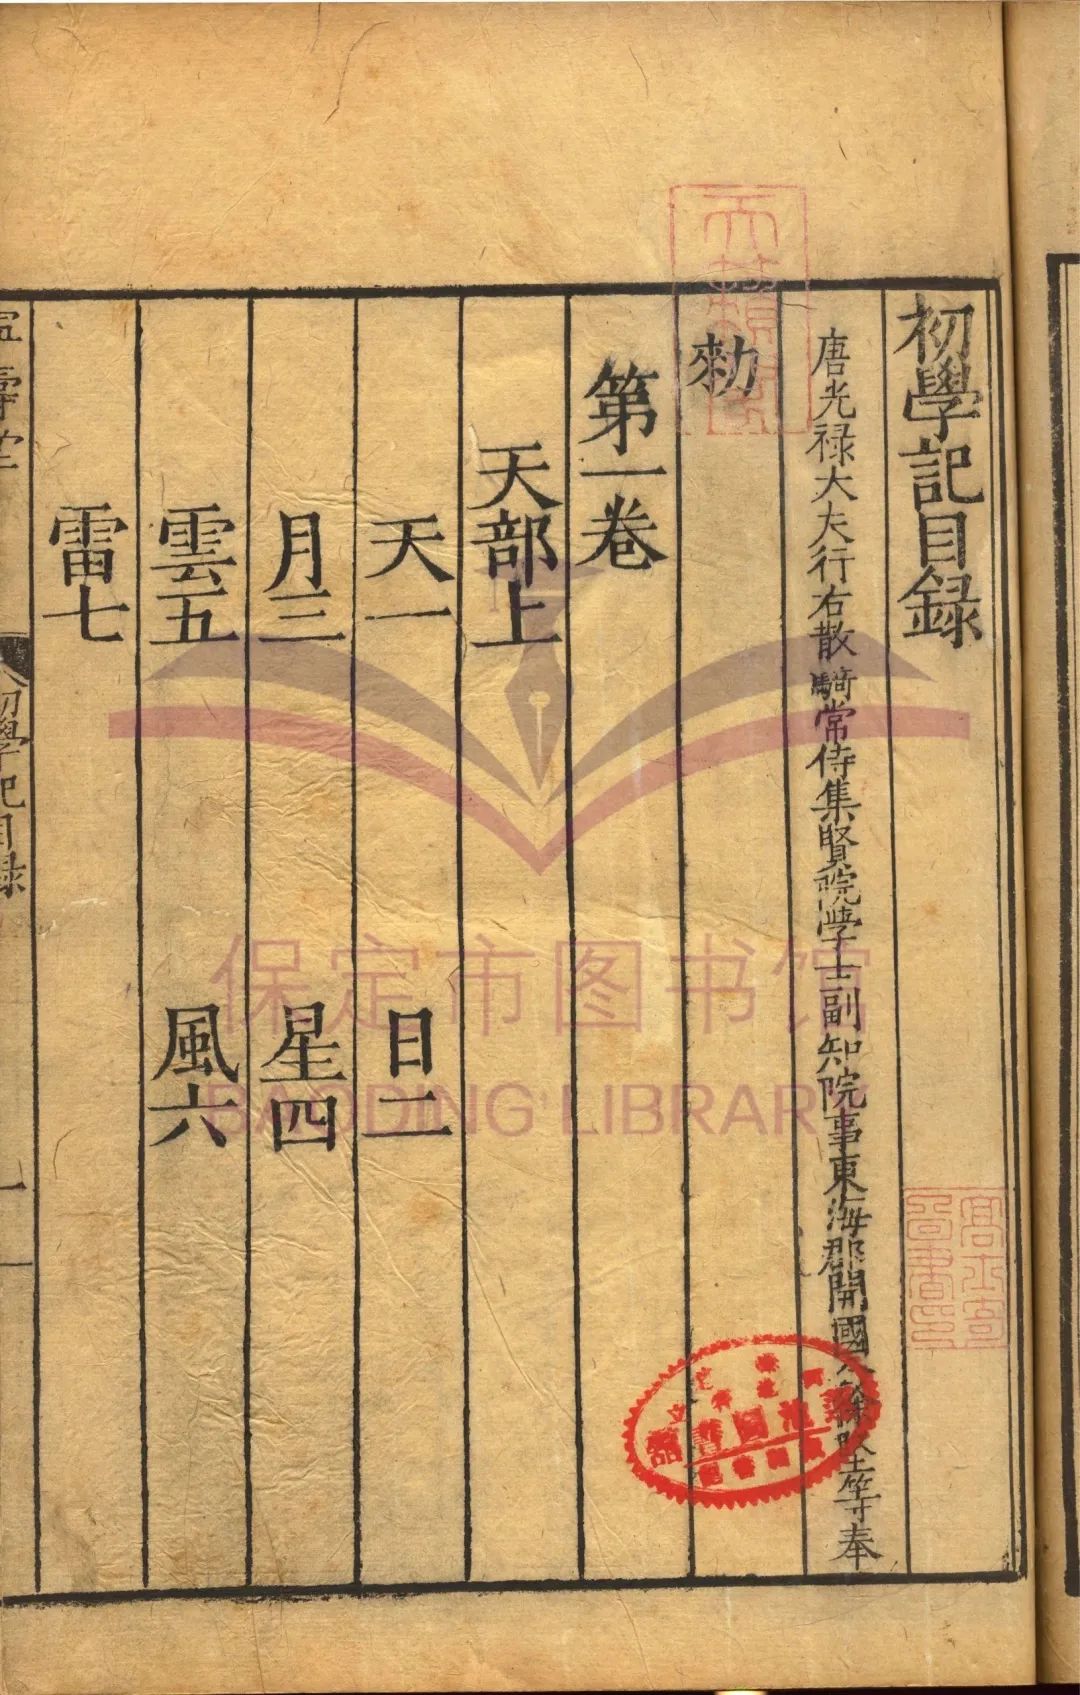 初學記目録
唐光禄大夫行右散騎常侍集賢院學士副知院事東海郡開國公徐堅等奉
勑
第一卷
天部上
天一 日二
月三 星四
雲五 風六
雷七
初學記目録
一
保定市图书馆
BAODING LIBRARY